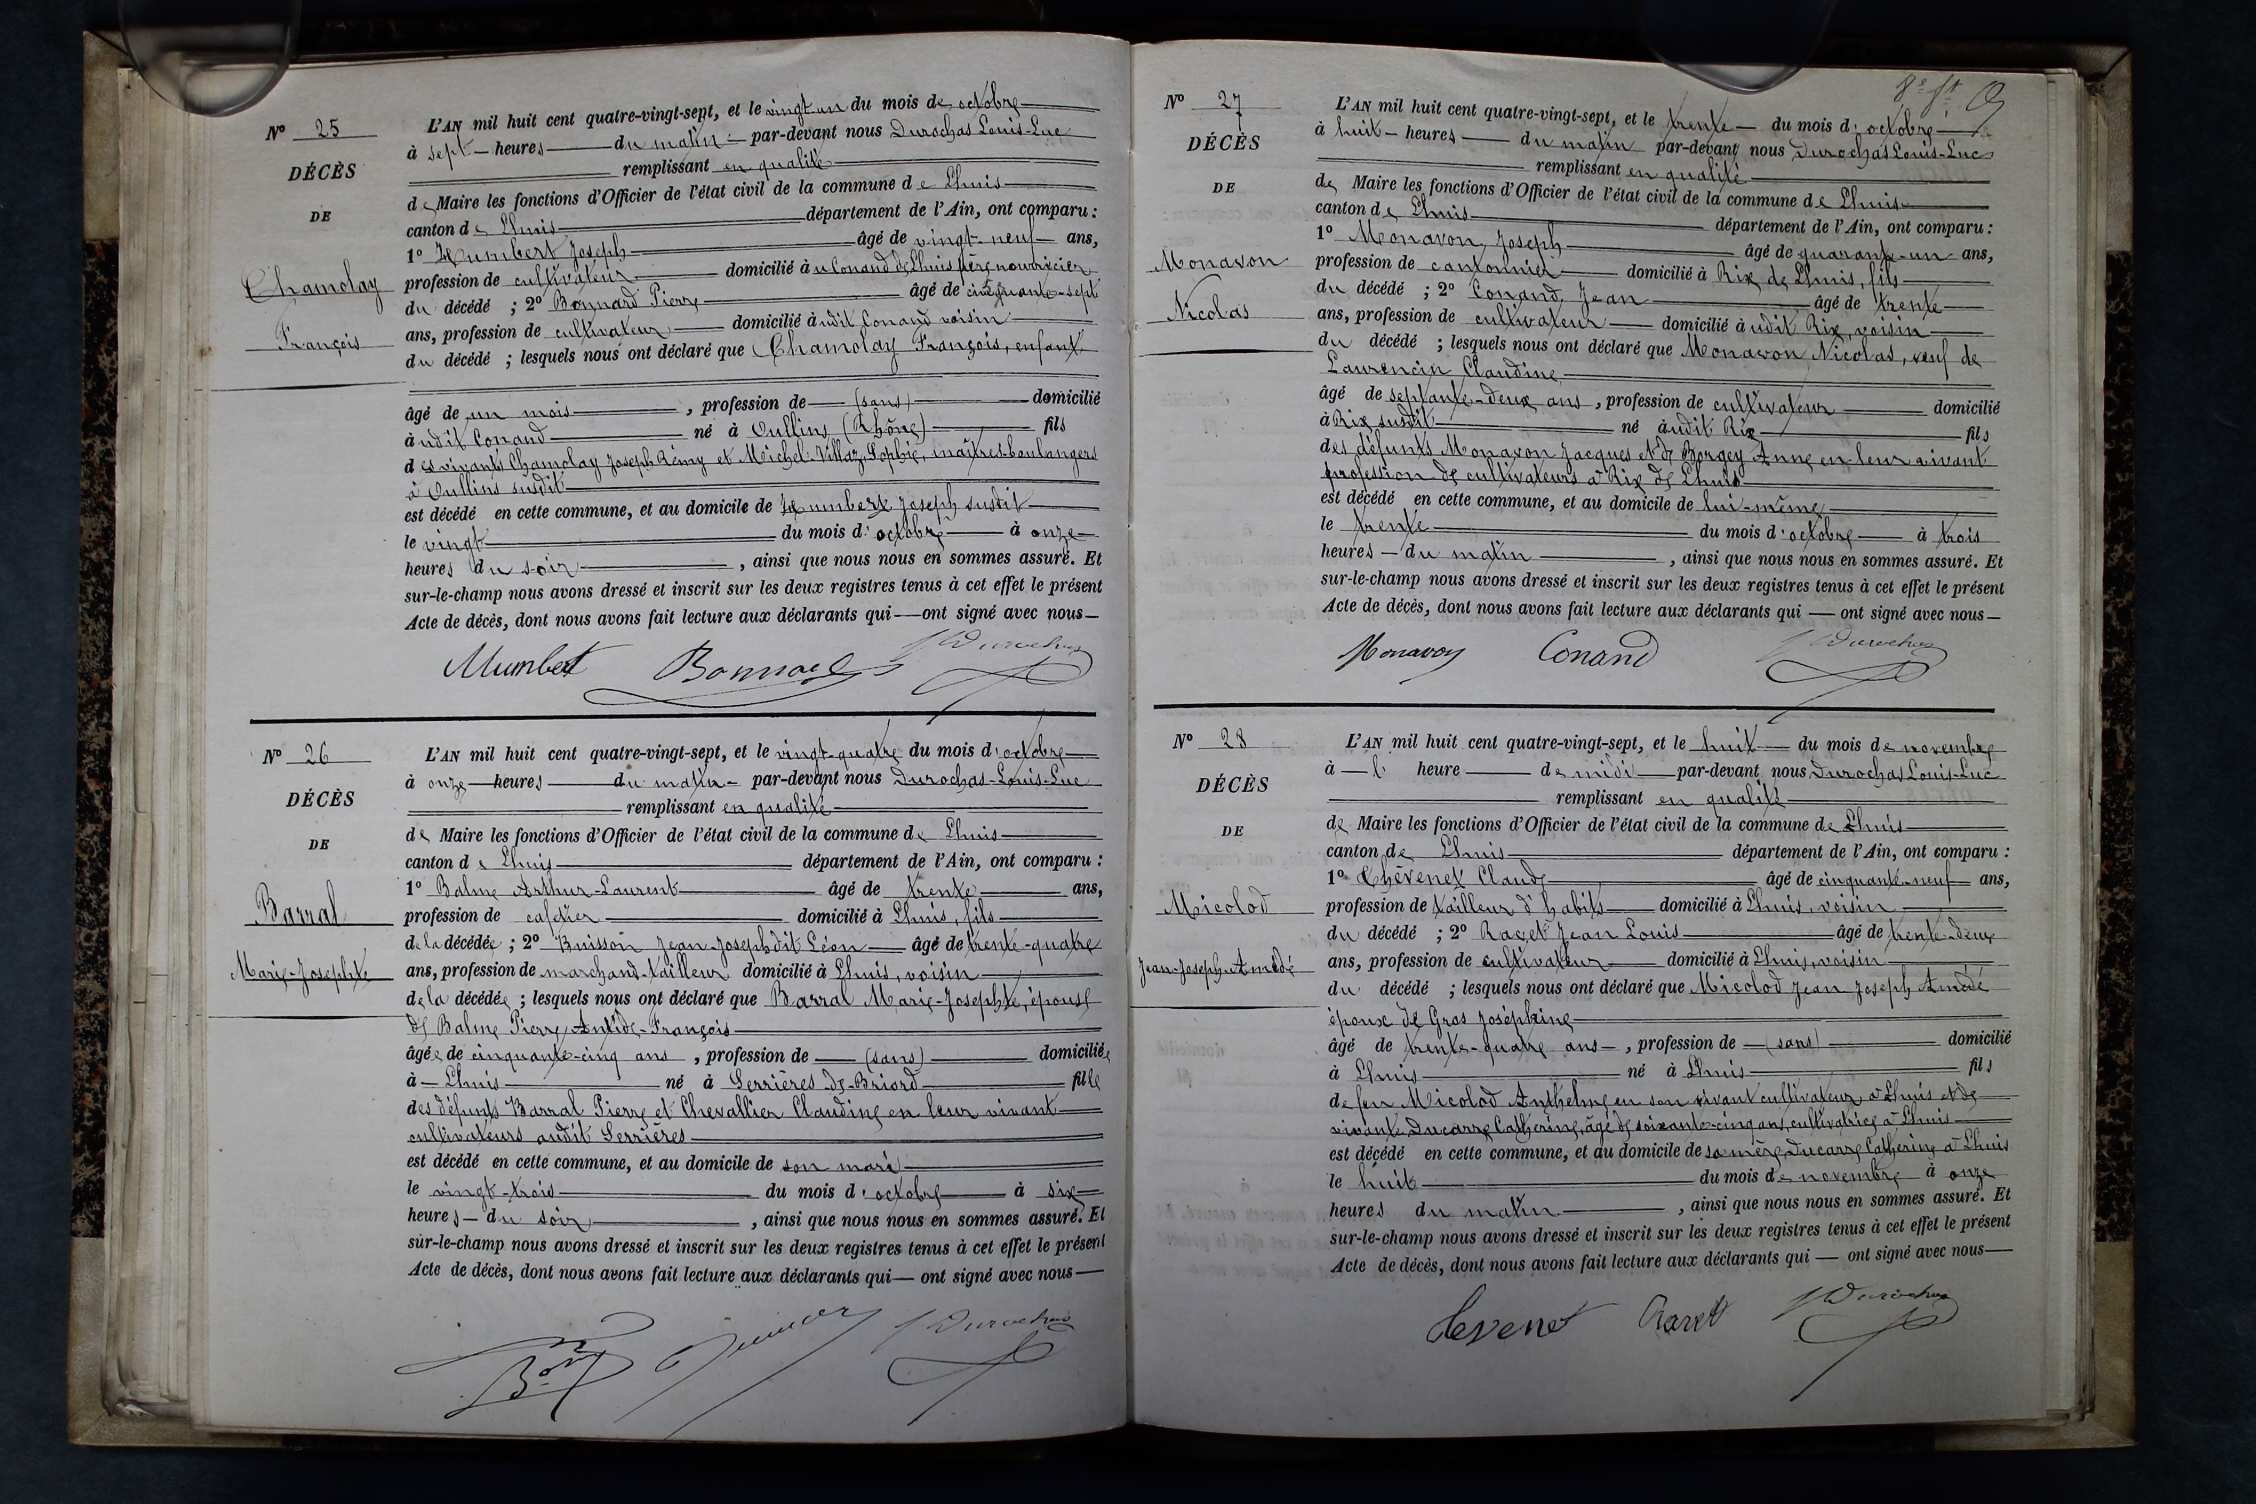 Nº 25
DÉCÈS
DE
Chamolay
François
L'AN mil huit cent quatre-vingt-sept, et le vingt un du mois de octobre
à sept heures du matin par-devant nous Durochas Louis-Luc
remplissant en qualité
de Maire les fonctions d'Officier de l'état civil de la commune de Lhuis
canton de Lhuis département de l'Ain, ont comparu :
1º Humbert Joseph âgé de vingt-neuf ans,
profession de cultivateur domicilié à u Conand de Lhuis père nourricier
du décédé ; 2º Bonnard Pierre âgé de cinquante-sept
ans, profession de cultivateur domicilié à udit Conand voisin
du décédé ; lesquels nous ont déclaré que Chamolay François, enfant
âgé de un mois , profession de (sans) domicilié
à udit Conand né à Oullins (Rhône) fils
des vivants Chamolay Joseph Rémy et Michel-Villaz Sophie, maîtres-boulangers
à Oullins susdit
est décédé en cette commune, et au domicile de Humbert Joseph susdit
le vingt du mois d'octobre à onze
heures du soir , ainsi que nous nous en sommes assuré. Et
sur-le-champ nous avons dressé et inscrit sur les deux registres tenus à cet effet le présent
Acte de décès, dont nous avons fait lecture aux déclarants qui ont signé avec nous
Humbert Bonnard Durochas
Nº 26
DÉCÈS
DE
Barral
Marie-Josephte
L'AN mil huit cent quatre-vingt-sept, et le vingt-quatre du mois d'octobre
à onze heures du matin par-devant nous Durochas-Louis-Luc
remplissant en qualité
de Maire les fonctions d'Officier de l'état civil de la commune de Lhuis
canton de Lhuis département de l'Ain, ont comparu :
1º Balme Arthur-Laurent âgé de trente ans,
profession de cafetier domicilié à Lhuis, fils
de la décédée ; 2º Buisson Jean-Joseph dit Léon âgé de trente-quatre
ans, profession de marchand-tailleur domicilié à Lhuis, voisin
de la décédée ; lesquels nous ont déclaré que Barral Marie-Josephte, épouse
de Balme Pierre Antide-François
âgée de cinquante-cinq ans , profession de (sans) domiciliée
à Lhuis né à Serrières de-Briord fille
des défunts Barral Pierre et Chevallier Claudine en leur vivant
cultivateurs audit Serrières
est décédé en cette commune, et au domicile de son mari
le vingt-trois du mois d'octobre à six
heures du soir , ainsi que nous nous en sommes assuré. Et
sur-le-champ nous avons dressé et inscrit sur les deux registres tenus à cet effet le présent
Acte de décès, dont nous avons fait lecture aux déclarants qui ont signé avec nous
Durochas
Nº 27
DÉCÈS
DE
Monavon
Nicolas
L'AN mil huit cent quatre-vingt-sept, et le trente du mois d'octobre
à huit heures du matin par-devant nous Durochas Louis-Luc
remplissant en qualité
de Maire les fonctions d'Officier de l'état civil de la commune de Lhuis
canton de Lhuis département de l'Ain, ont comparu :
1º Monavon Joseph âgé de quarante-un ans,
profession de cantonnier domicilié à Rix de Lhuis, fils
du décédé ; 2º Conand Jean âgé de trente
ans, profession de cultivateur domicilié à udit Rix, voisin
du décédé ; lesquels nous ont déclaré que Monavon Nicolas, veuf de
Laurencin Claudine
âgé de septante-deux ans , profession de cultivateur domicilié
à Rix susdit né à udit Rix fils
des défunts Monavon Jacques et de Borgey Anne en leur vivant
profession de cultivateurs à Rix de Lhuis
est décédé en cette commune, et au domicile de lui-même
le trente du mois d'octobre à trois
heures du matin , ainsi que nous nous en sommes assuré. Et
sur-le-champ nous avons dressé et inscrit sur les deux registres tenus à cet effet le présent
Acte de décès, dont nous avons fait lecture aux déclarants qui ont signé avec nous
Monavon Conand Durochas
Nº 28
DÉCÈS
DE
Micolod
Jean-Joseph-Amédé
L'AN mil huit cent quatre-vingt-sept, et le huit du mois de novembre
à l' heure de midi par-devant nous Durochas Louis-Luc
remplissant en qualité
de Maire les fonctions d'Officier de l'état civil de la commune de Lhuis
canton de Lhuis département de l'Ain, ont comparu :
1º Thévenet Claude âgé de cinquante-neuf ans,
profession de tailleur d'habits domicilié à Lhuis, voisin
du décédé ; 2º Ravet Jean Louis âgé de trente-deux
ans, profession de cultivateur domicilié à Lhuis, voisin
du décédé ; lesquels nous ont déclaré que Micolod Jean Joseph Amédé
époux de Gros Joséphine
âgé de trente-quatre ans , profession de (sans) domicilié
à Lhuis né à Lhuis fils
de feu Micolod Anthelme en son vivant cultivateur à Lhuis et de
vivante Ducarre Catherine, âgé de soixante-cinq ans, cultivatrice à Lhuis
est décédé en cette commune, et au domicile de sa mère Ducarre Catherine à Lhuis
le huit du mois de novembre à onze
heures du matin , ainsi que nous nous en sommes assuré. Et
sur-le-champ nous avons dressé et inscrit sur les deux registres tenus à cet effet le présent
Acte de décès, dont nous avons fait lecture aux déclarants qui ont signé avec nous
Tevenet Ravet Durochas